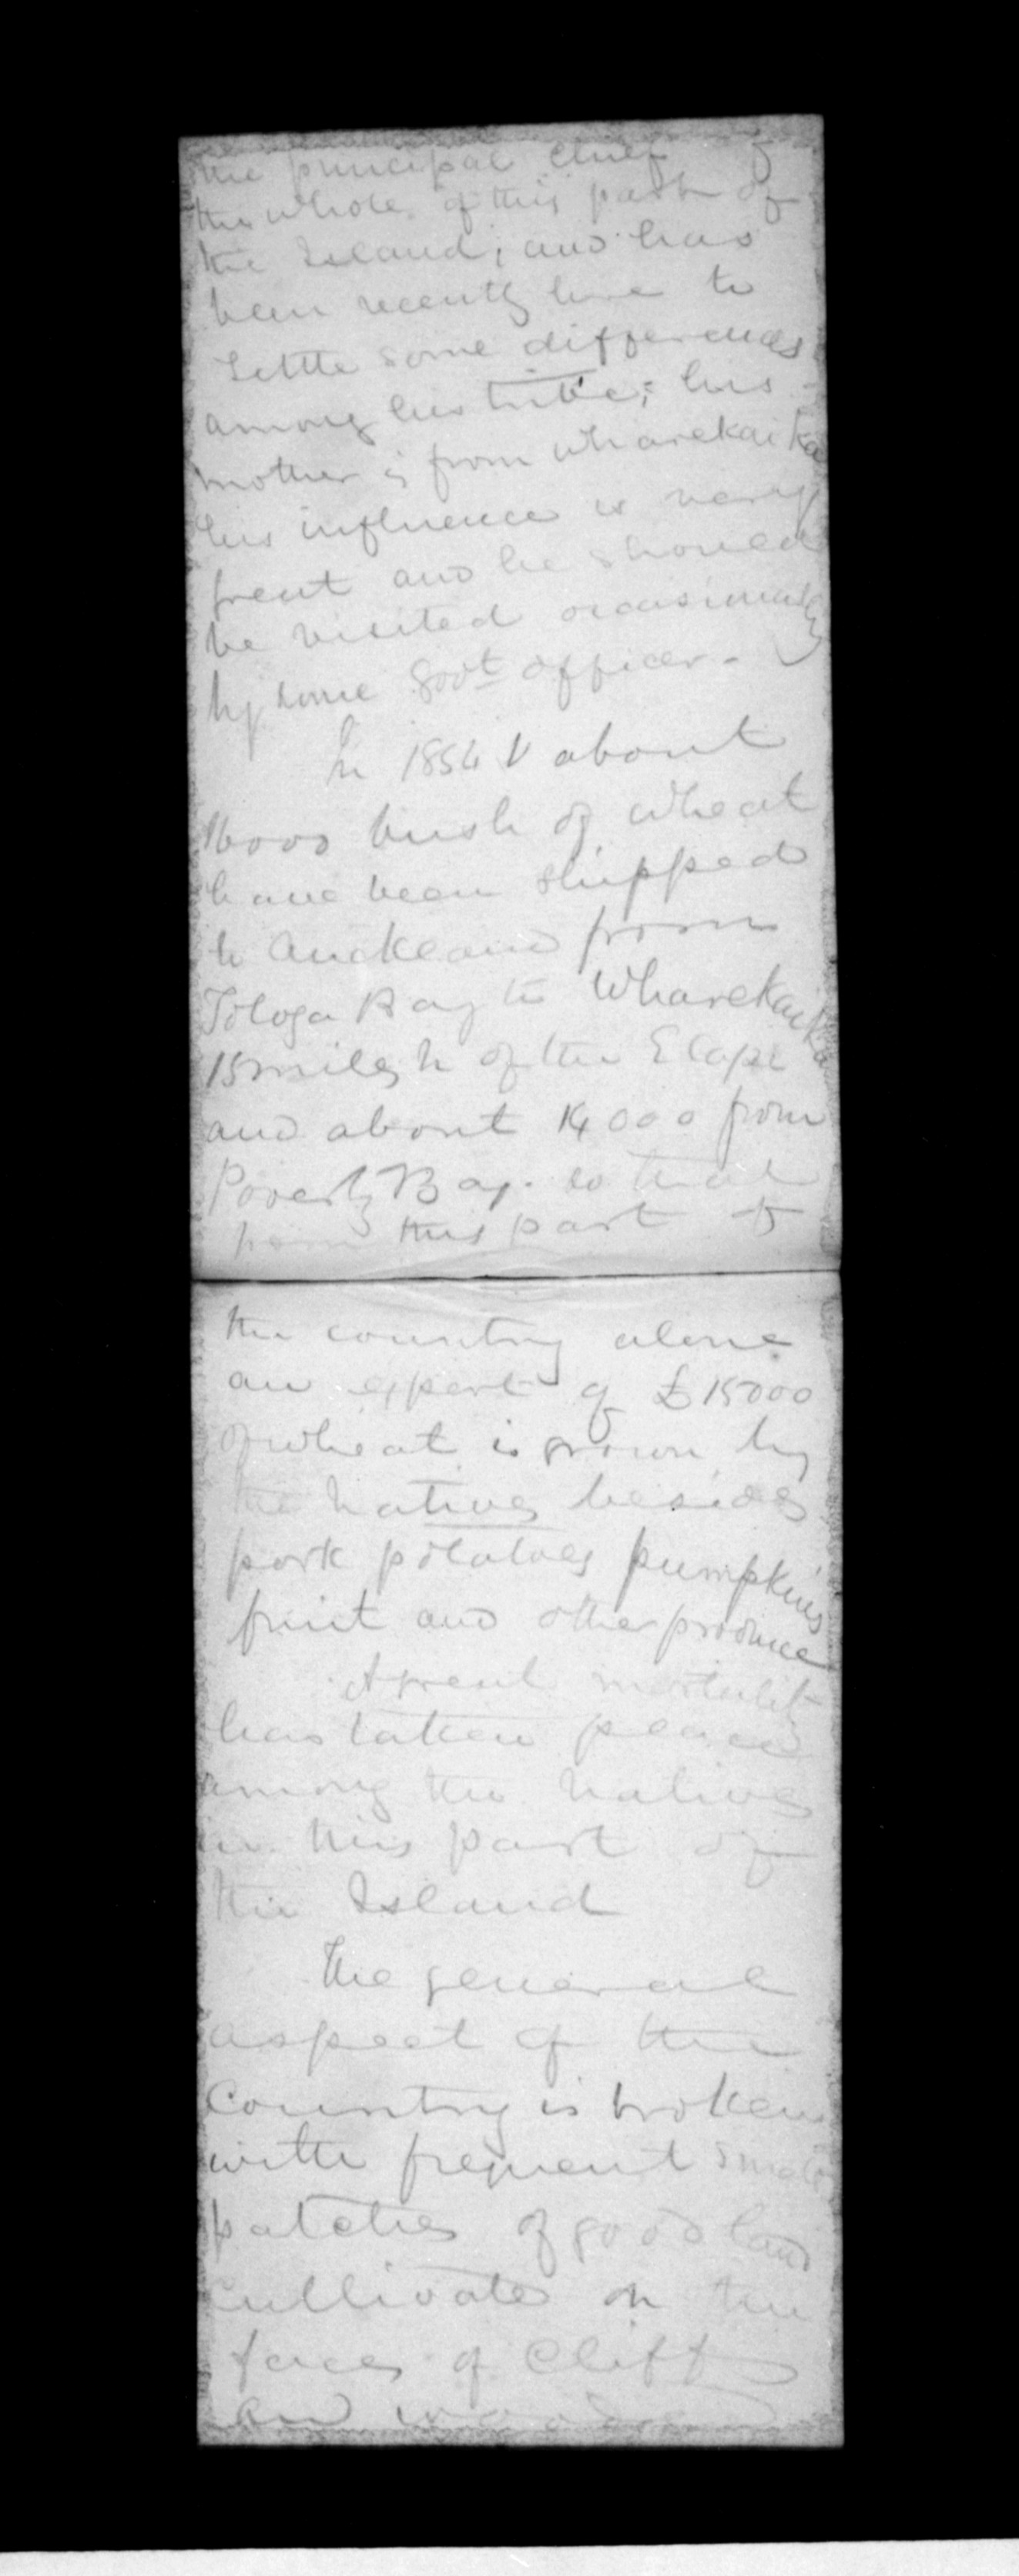 the principal chief of
the whole of this part of
the Island; and has
been recently here to
settle some differences
among his tribe; his
mother is from Wharekaika
his influence is very
great and he should
be visited occasionally
by some Govt officer -
In 1854 about
16000 bush of wheat
have been shipped
to Auckland from
Tologa Bay to Wharekaika
15 miles N of the E Cape
and about 14000 from
Poverty Bay. so that
from this part of
the country alone
an export of £15000
of wheat is grown by
the natives besides
pork potatoes pumpkins
fruit and other produce
A great mortality
has taken place
among the natives
in this part of
the Island
The general
aspect of the
Country is broken
with frequent small
patches of good land
cultivated on the
faces of Cliffs
and